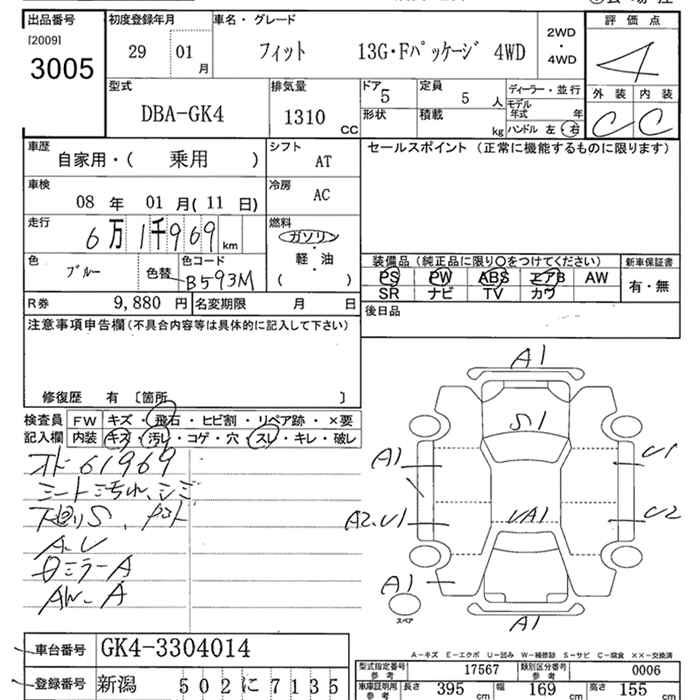 出品番号 初度登録年月 車名・グレード 評価点
[2009] 29 01 月 フィット 13G・Fパッケージ 4WD 2WD・4WD 4
3005
型式 排気量 ドア 定員 ディーラー・並行 外装 内装
DBA-GK4 1310 cc 5 5 人 モデル年式 年 C C
形状 積載 kg ハンドル 左・右
車歴 自家用・( 乗用 ) シフト AT セールスポイント (正常に機能するものに限ります)
車検 08 年 01 月( 11 日) 冷房 AC
走行 6万1千969 km 燃料 ガソリン・軽・油 ( )
色 ブルー 色替 色コード B593M
装備品 (純正品に限り○をつけてください) 新車保証書
PS PW ABS エアB AW 有・無
SR ナビ TV カワ
R券 9,880 円 名変期限 月 日 後日品
注意事項申告欄(不具合内容等は具体的に記入して下さい)
修復歴 有 〔箇所 〕
検査員 FW キズ・飛石・ヒビ割・リペア跡・×要
記入欄 内装 キズ・汚レ・コゲ・穴・スレ・キレ・破レ
61969
シート汚れ、シミ
A.U
ミラーA
AW-A
A1
S1
A1 U1
A2.U1 UA1 U2
A1
スペア A1
A-キズ E-エクボ U-凹み W-補修跡 S-サビ C-腐食 ××-交換済
車台番号 GK4-3304014
型式指定番号 参考 17567 類別区分番号 参考 0006
登録番号 新潟 502 に 7135
車庫証明用 参考 長さ 395 cm 幅 169 cm 高さ 155 cm